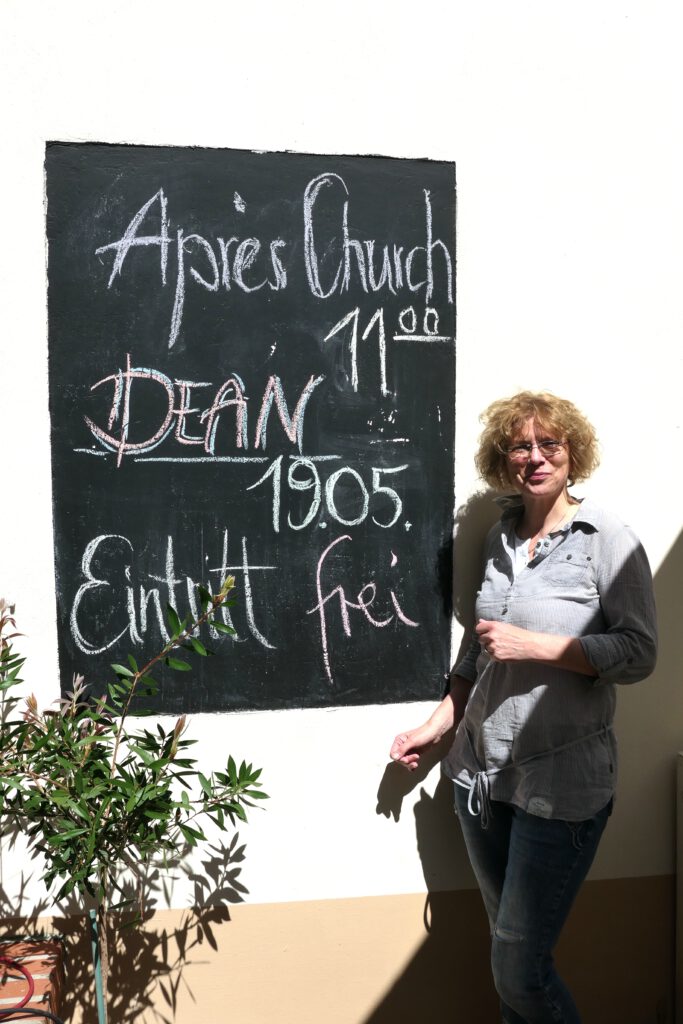 Après Church
11 00
DEAN
19.05.
Eintritt frei